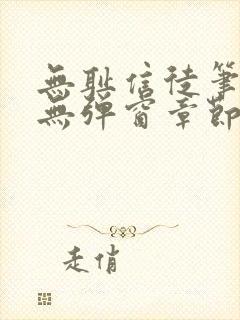 無聖信徒筆
無彈窗章節
走俏